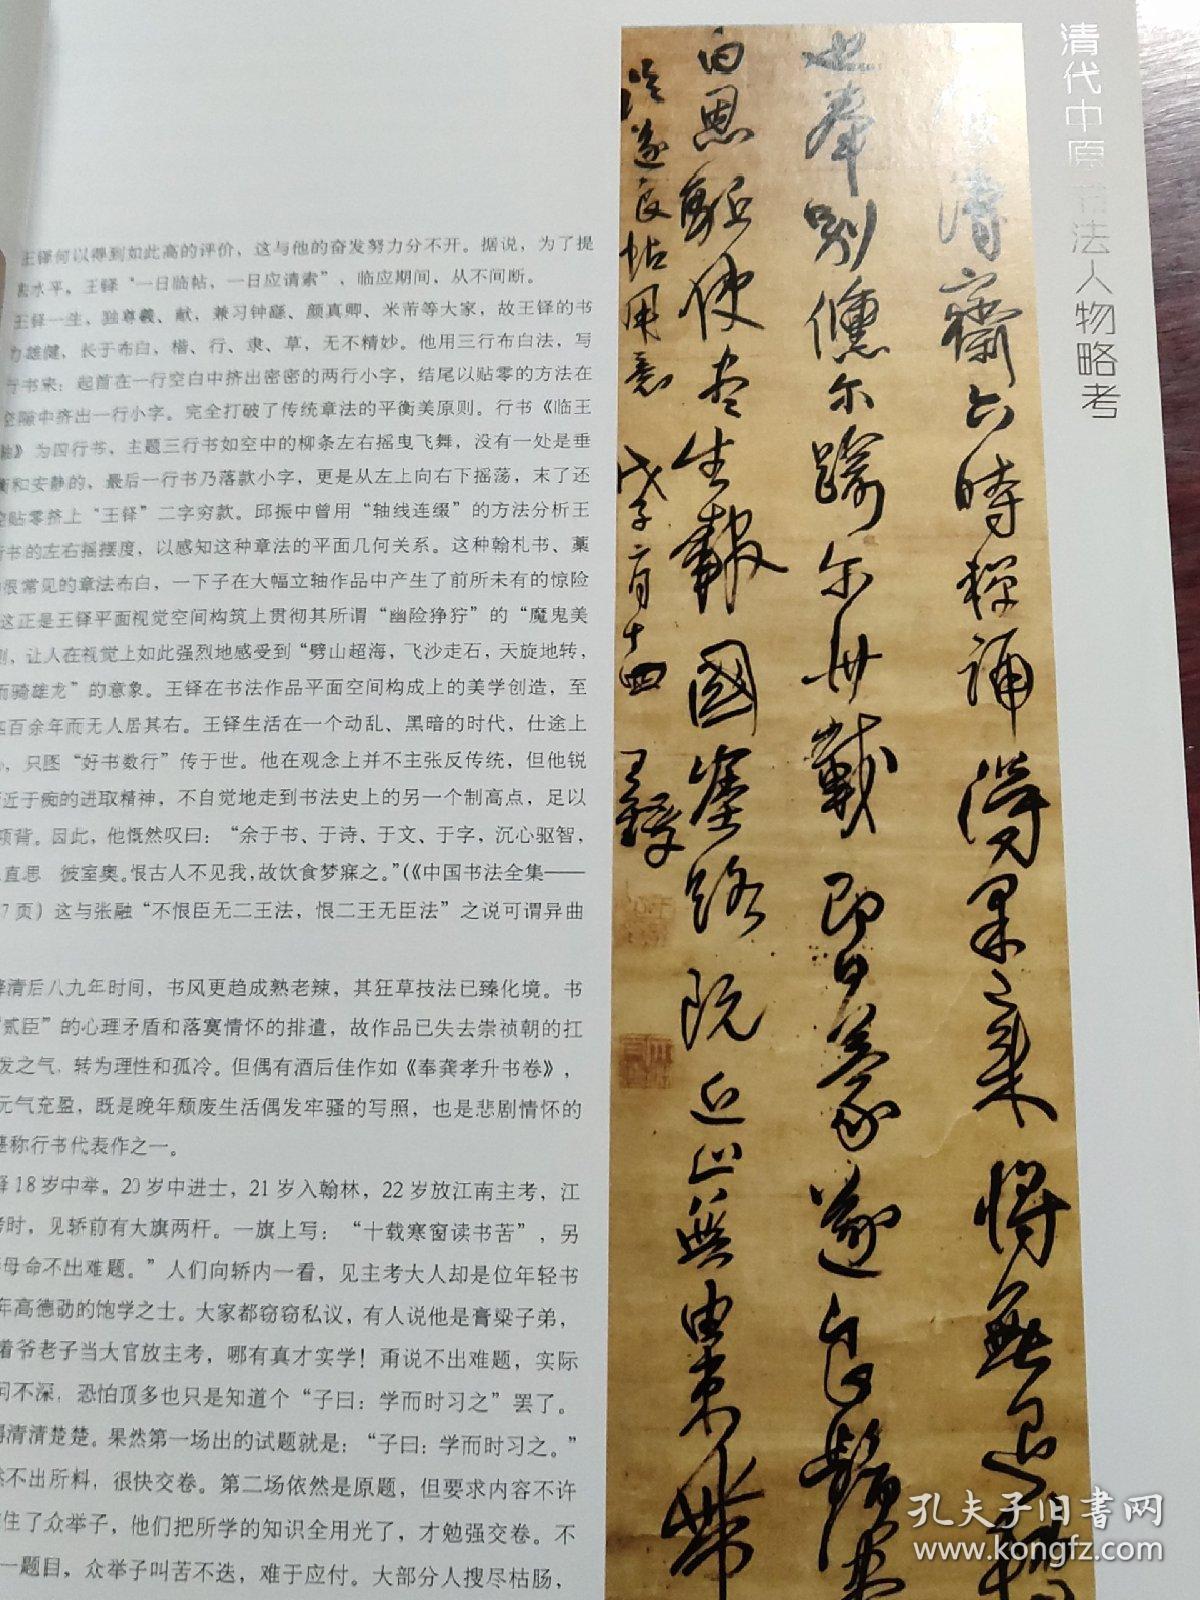 清代中原书法人物略考
王铎何以得到如此高的评价，这与他的奋发努力分不开。据说，为了提
水平。王铎“一日临帖，一日应请索”，临应期间，从不间断。
王铎一生，独尊羲、献，兼习钟繇、颜真卿、米芾等大家，故王铎的书
力雄健，长于布白，楷、行、隶、草，无不精妙。他用三行布白法，写
行书来：起首在一行空白中挤出密密的两行小字，结尾以贴零的方法在
空隙中挤出一行小字。完全打破了传统章法的平衡美原则。行书《临王
轴》为四行书，主题三行书如空中的柳条左右摇曳飞舞，没有一处是垂
衡和安静的，最后一行书乃落款小字，更是从左上向右下摇荡，末了还
空贴零挤上“王铎”二字穷款。邱振中曾用“轴线连缀”的方法分析王
行书的左右摇摆度，以感知这种章法的平面几何关系。这种翰札书、藁
很常见的章法布白，一下子在大幅立轴作品中产生了前所未有的惊险
这正是王铎平面视觉空间构筑上贯彻其所谓“幽险狰狞”的“魔鬼美
，让人在视觉上如此强烈地感受到“劈山超海，飞沙走石，天旋地转，
而骑雄龙”的意象。王铎在书法作品平面空间构成上的美学创造，至
百余年而无人居其右。王铎生活在一个动乱、黑暗的时代，仕途上
，只图“好书数行”传于世。他在观念上并不主张反传统，但他锐
近于痴的进取精神，不自觉地走到书法史上的另一个制高点，足以
项背。因此，他慨然叹曰：“余于书、于诗、于文、于字，沉心驱智，
直思 彼室奥。恨古人不见我，故饮食梦寐之。”(《中国书法全集——
7页）这与张融“不恨臣无二王法，恨二王无臣法”之说可谓异曲
降清后八九年时间，书风更趋成熟老辣，其狂草技法已臻化境。书
“贰臣”的心理矛盾和落寞情怀的排遣，故作品已失去崇祯朝的扛
发之气，转为理性和孤冷。但偶有酒后佳作如《奉龚孝升书卷》，
元气充盈，既是晚年颓废生活偶发牢骚的写照，也是悲剧情怀的
堪称行书代表作之一。
铎18岁中举。20岁中进士，21岁入翰林，22岁放江南主考，江
考时，见轿前有大旗两杆。一旗上写：“十载寒窗读书苦”，另
母命不出难题。”人们向轿内一看，见主考大人却是位年轻书
年高德劭的饱学之士。大家都窃窃私议，有人说他是膏粱子弟，
着爷老子当大官放主考，哪有真才实学！甭说不出难题，实际
问不深，恐怕顶多也只是知道个“子曰：学而时习之”罢了。
得清清楚楚。果然第一场出的试题就是：“子曰：学而时习之。”
然不出所料，很快交卷。第二场依然是原题，但要求内容不许
住了众举子，他们把所学的知识全用光了，才勉强交卷。不
一题目，众举子叫苦不迭，难于应付。大部分人搜尽枯肠，
齋六時禪誦得果来将無退轉
也奉别儵尔踰尔卅載即日蒙遂良鬚
白恩驅使盡生報國塞路既近無由束帶
临遂良帖用意 戊子二月十四 王鐸
孔夫子旧书网
www.kongfz.com